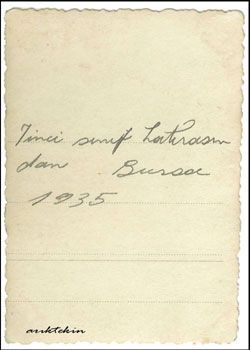 7inci sınıf hatırasın
dan Bursa
1935
anktekin